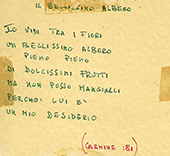 IL BELLISSIMO ALBERO
IO VIDI TRA I FIORI
UN BELLISSIMO ALBERO
PIENO PIENO
DI DOLCISSIMI FRUTTI
MA NON POSSO MANGIARLI
PERCHÈ LUI È
UN MIO DESIDERIO
(CARMINE 1981)